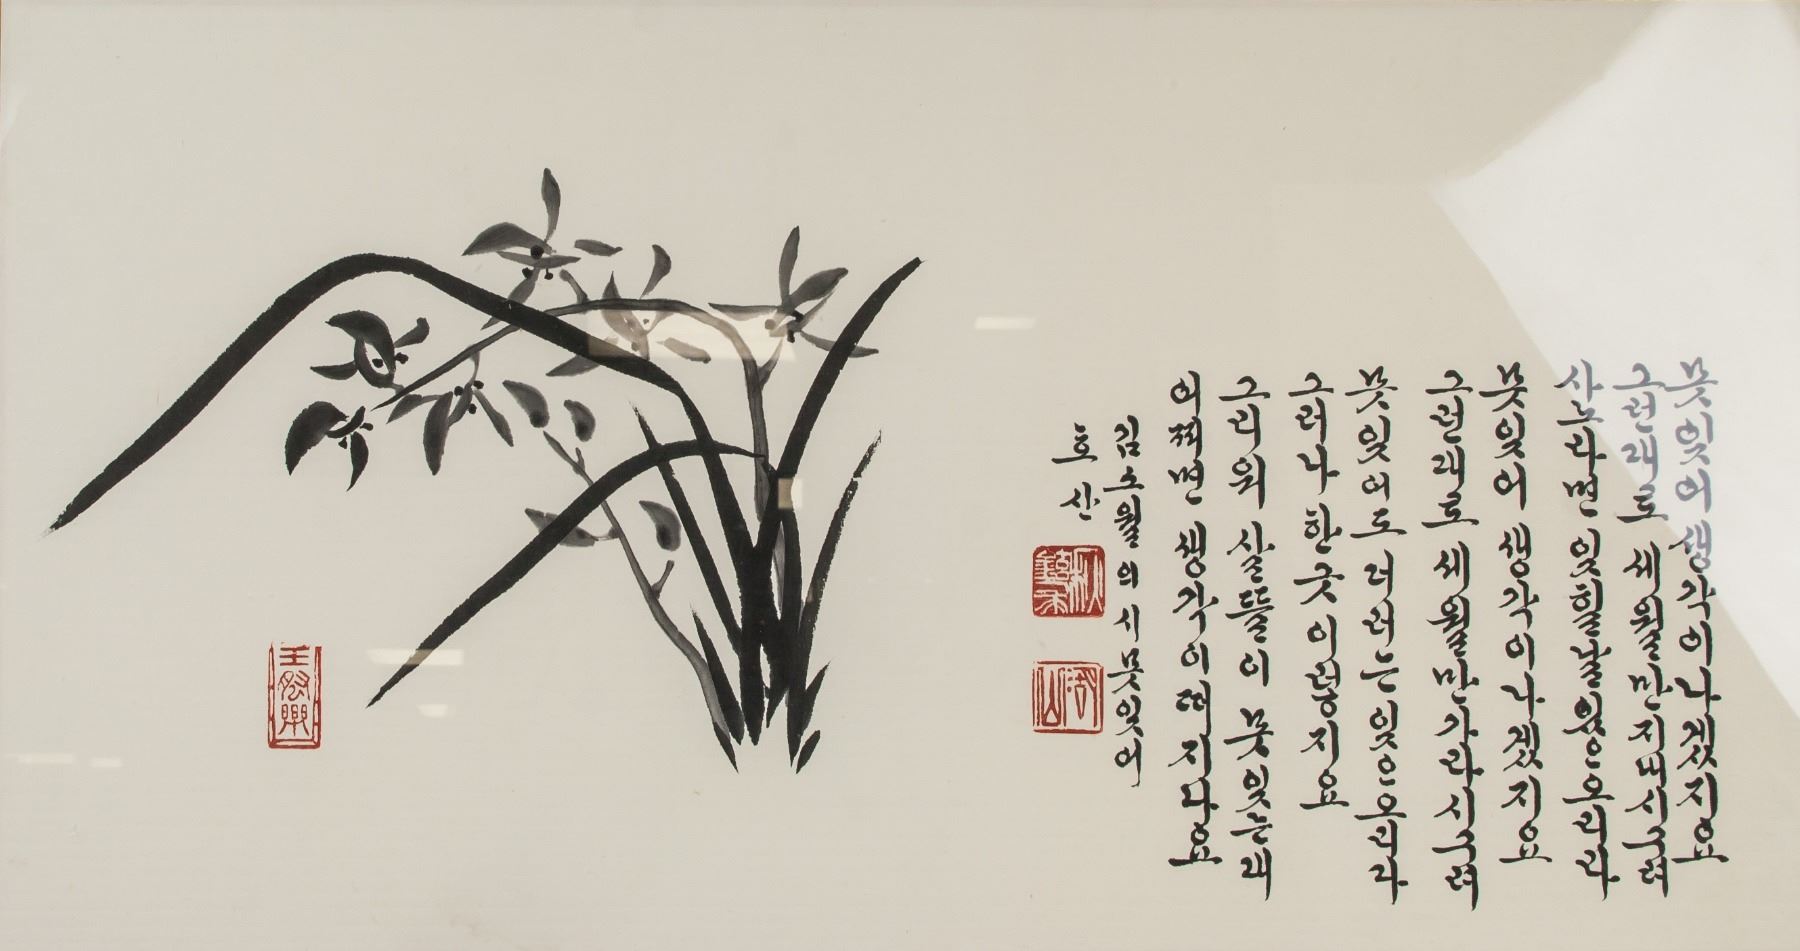 못잊어 생각이나겠지요
그런대로 세월만지내시구려
사노라면 잊힐날있으오리다
못잊어 생각이나겠지요
그런대로 세월만가라시구려
못잊어도 더러는잊으오리다
그러나 한긋이렇지요
그리워 살뜰이 못잊는데
어찌면 생각이떠지나요
김소월의 시 못잊어
호산